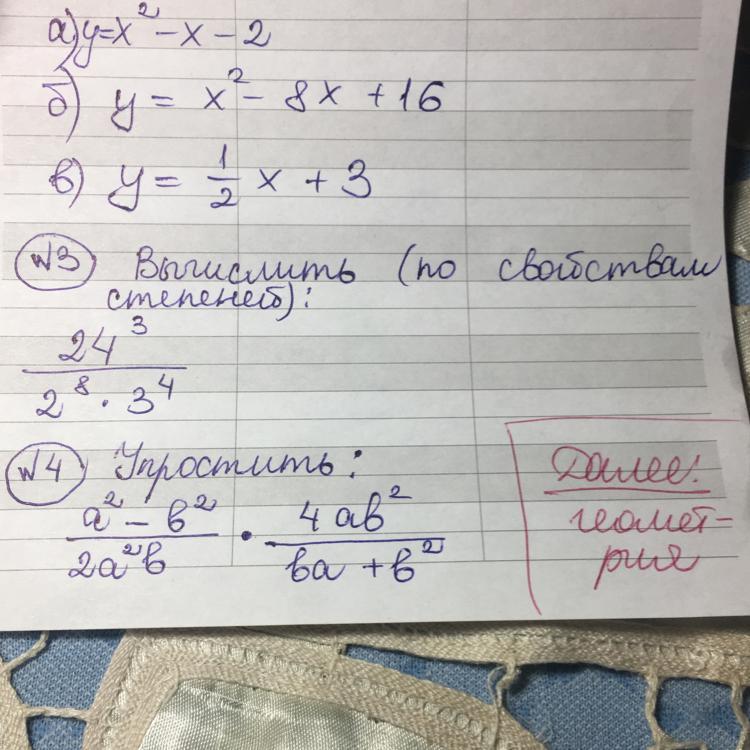 а) y = x² - x - 2
б) y = x² - 8x + 16
в) y = 1/2 x + 3
№3 Вычислить (по свойствам
степеней):
24³
2⁸ · 3⁴
№4 Упростить:
a² - b² / 2a²b · 4ab² / ba + b²
Далее:
геомет-
рия